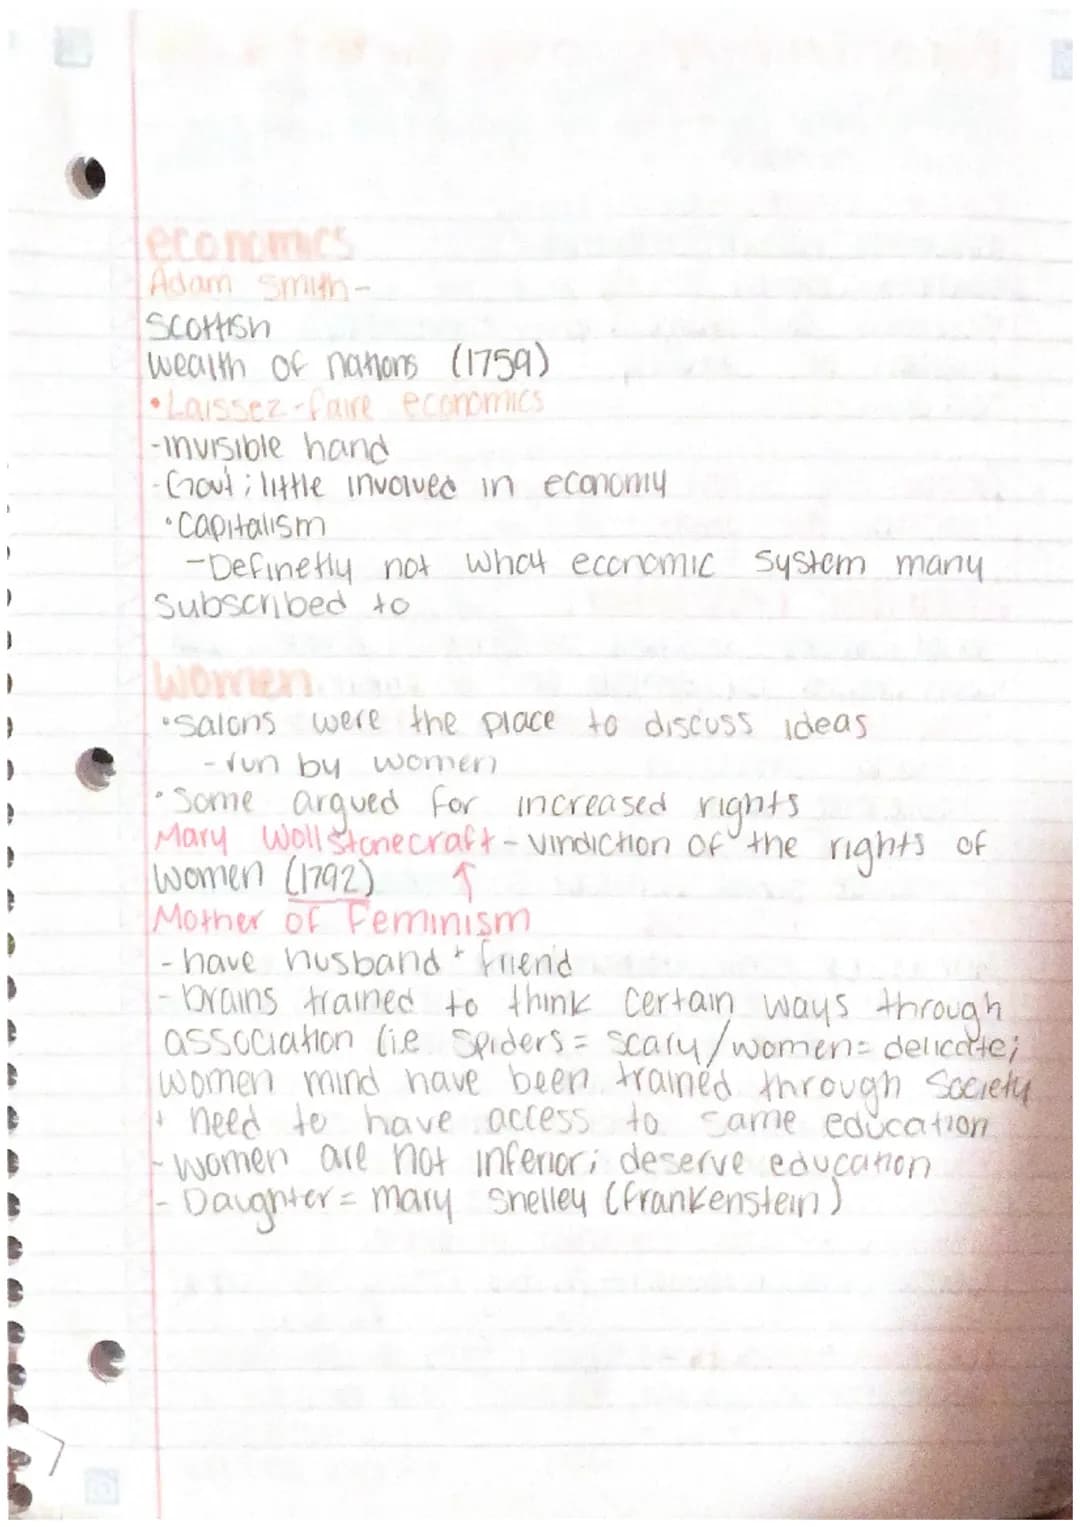 economics
Adam Smith-
Scottish
Wealth of nations (1759)
•Laissez-faire economics
-invisible hand
-Govt; little involved in economy
•Capitalism
-Definetly not what economic system many
subscribed to
Women
•Salons were the place to discuss ideas
-run by women
•Some argued for increased rights
Mary Wollstonecraft - Vindiction of the rights of
Women (1792) ↑
Mother of Feminism
- have husband + friend
- brains trained to think certain ways through
association (i.e spiders = scary/women = delicate;
women mind have been trained through society
+ need to have access to same education
- women are not inferior; deserve education
- Daughter = mary shelley (frankenstein)